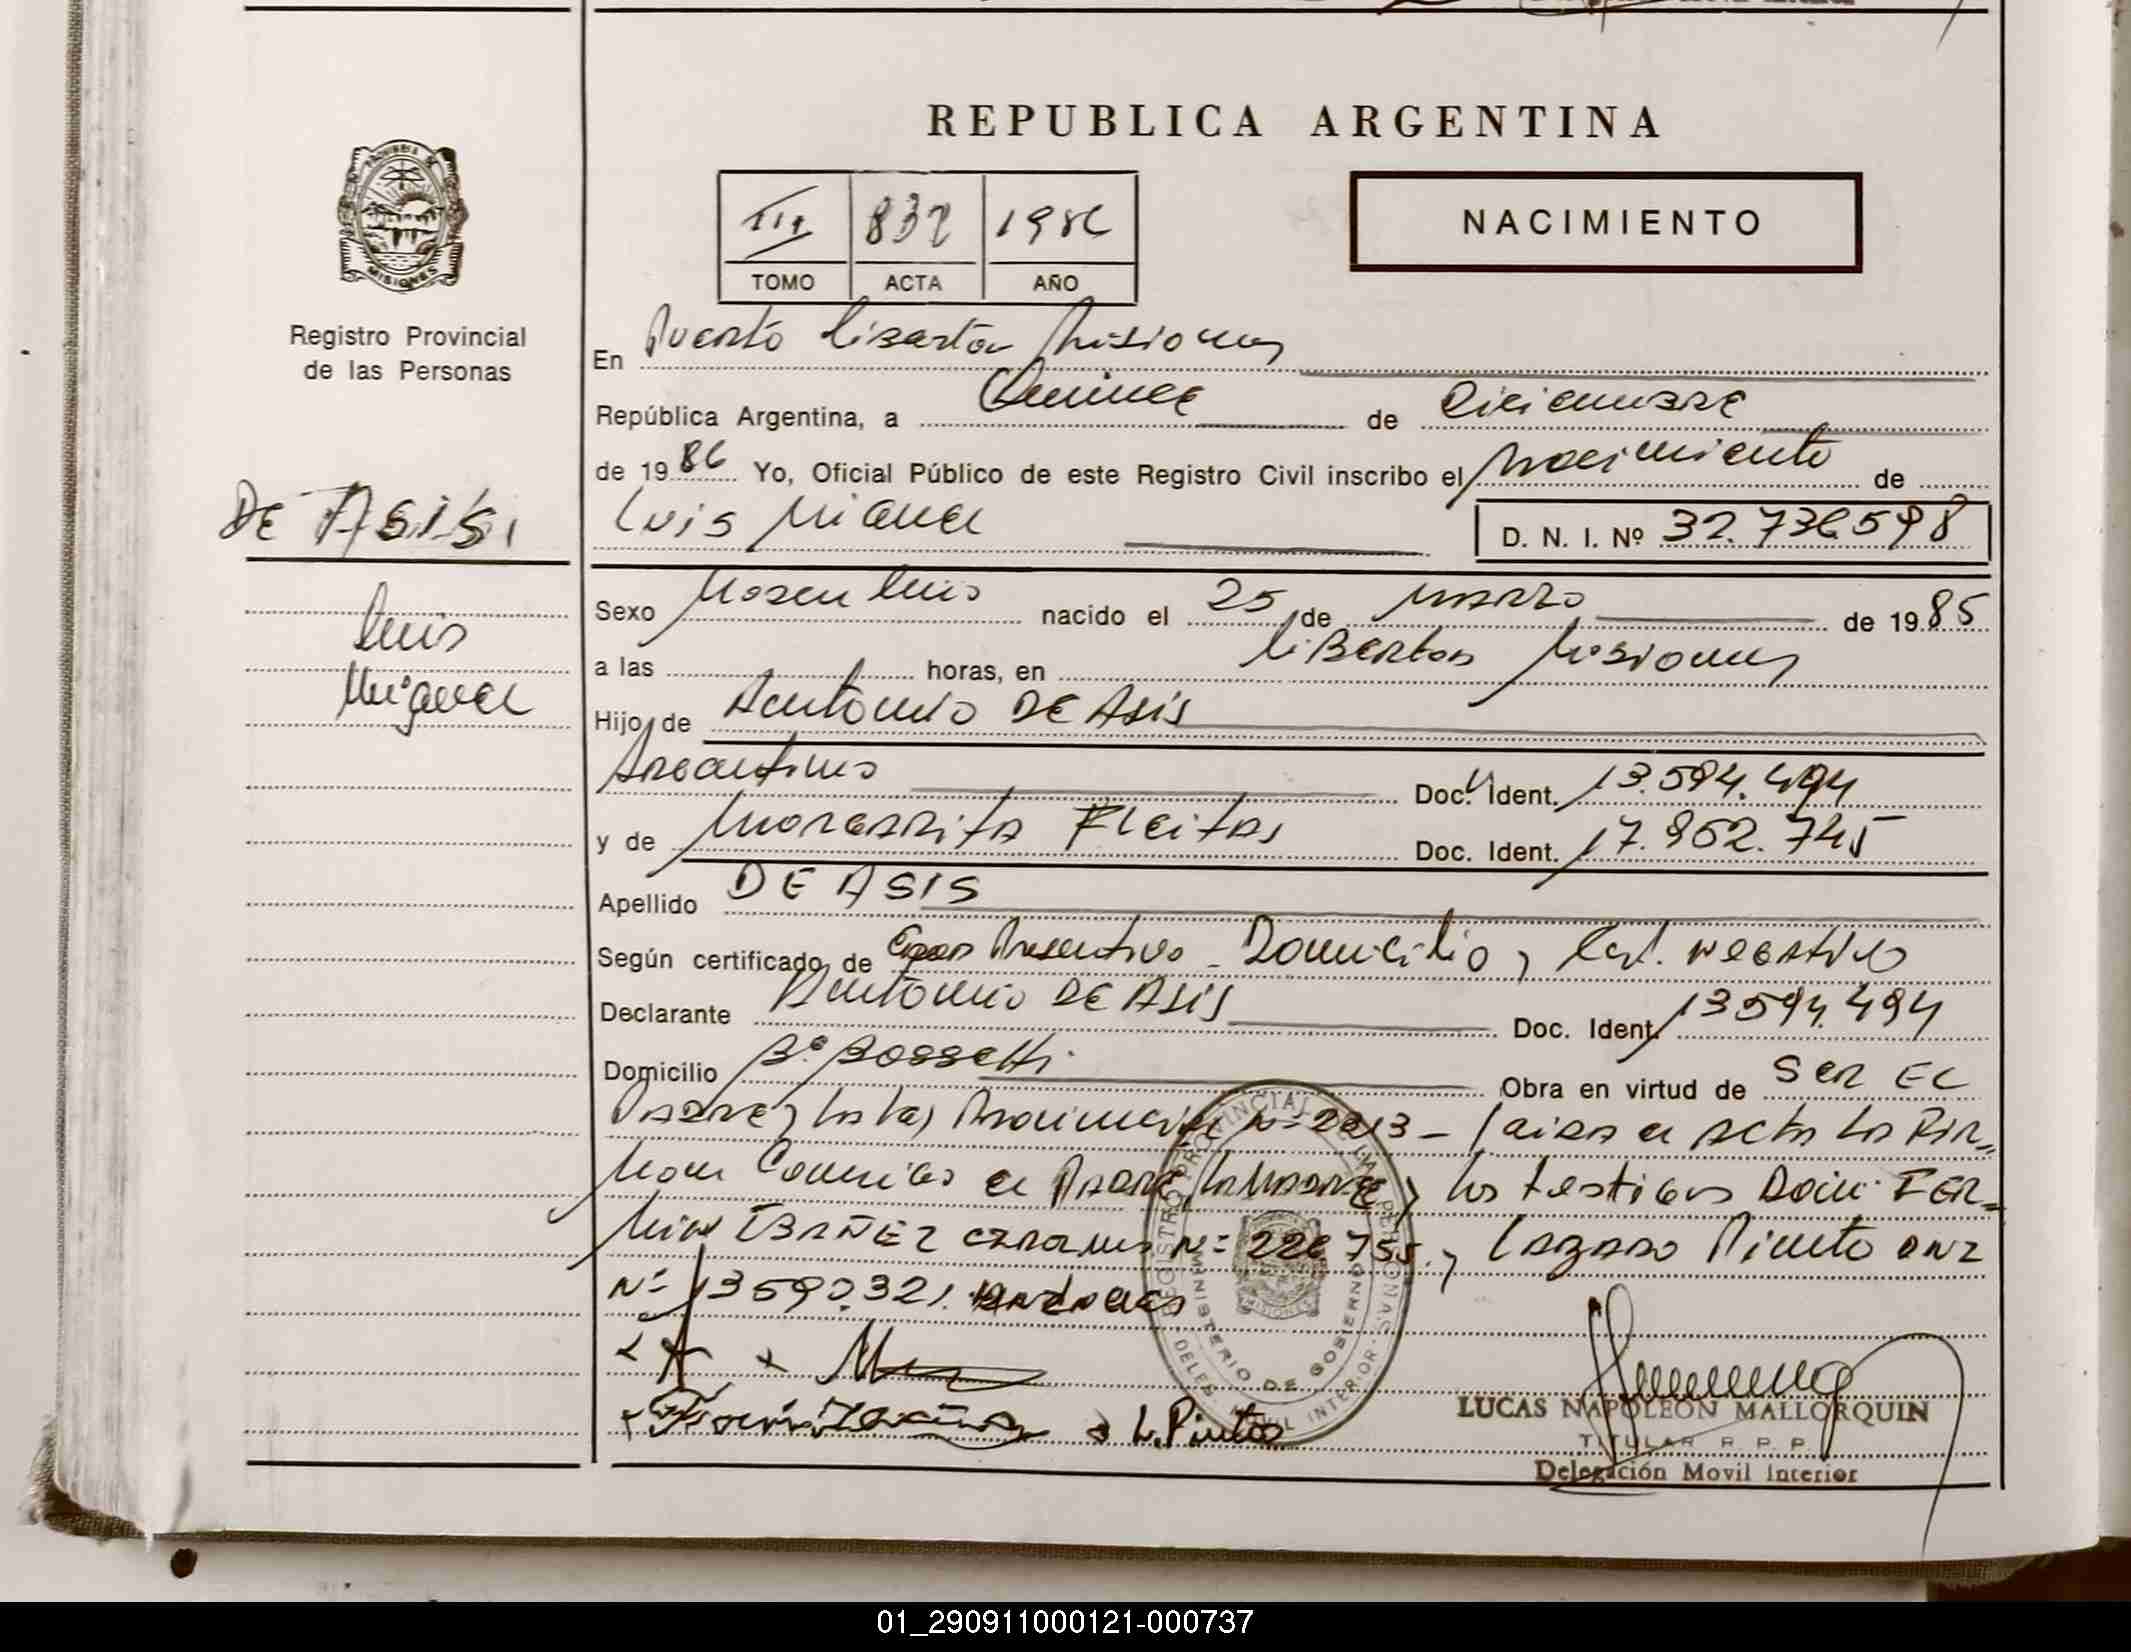 REPUBLICA ARGENTINA
PROVINCIA DE
MISIONES
Registro Provincial
de las Personas
III 832 1986
TOMO ACTA AÑO
NACIMIENTO
En Puerto Libertad Misiones
República Argentina, a Quince de Diciembre
de 1986 Yo, Oficial Público de este Registro Civil inscribo el Nacimiento de
Luis Miguel D. N. I. Nº 32.736.598
DE ASIS
Luis
Miguel
Sexo Masculino nacido el 25 de Marzo de 1985
a las horas, en Libertad Misiones
Hijo de Antonio DE ASIS
Argentino Doc. Ident. 13.594.494
y de Margarita Fleitas Doc. Ident. 17.952.745
Apellido DE ASIS
Según certificado de Presentivo - Domicilio y negativo
Declarante Antonio DE ASIS Doc. Ident. 13594.494
Domicilio Bº Bossetti Obra en virtud de SER EL
PADRE y la Ley Nº 2213 - el acta la FIR
man Conmigo el PADRE LA MADRE y los testigos Don FER
MIN IBAÑEZ Nº 226755 y Lazaro Pinto DNI
Nº 13590.321.
L. Pinto
REGISTRO PROVINCIAL DE LAS PERSONAS
MINISTERIO DE GOBIERNO
DELEG. MOVIL INTERIOR
MISIONES
LUCAS NAPOLEON MALLORQUIN
TITULAR R. P. P.
Delegación Movil Interior
01_290911000121-000737